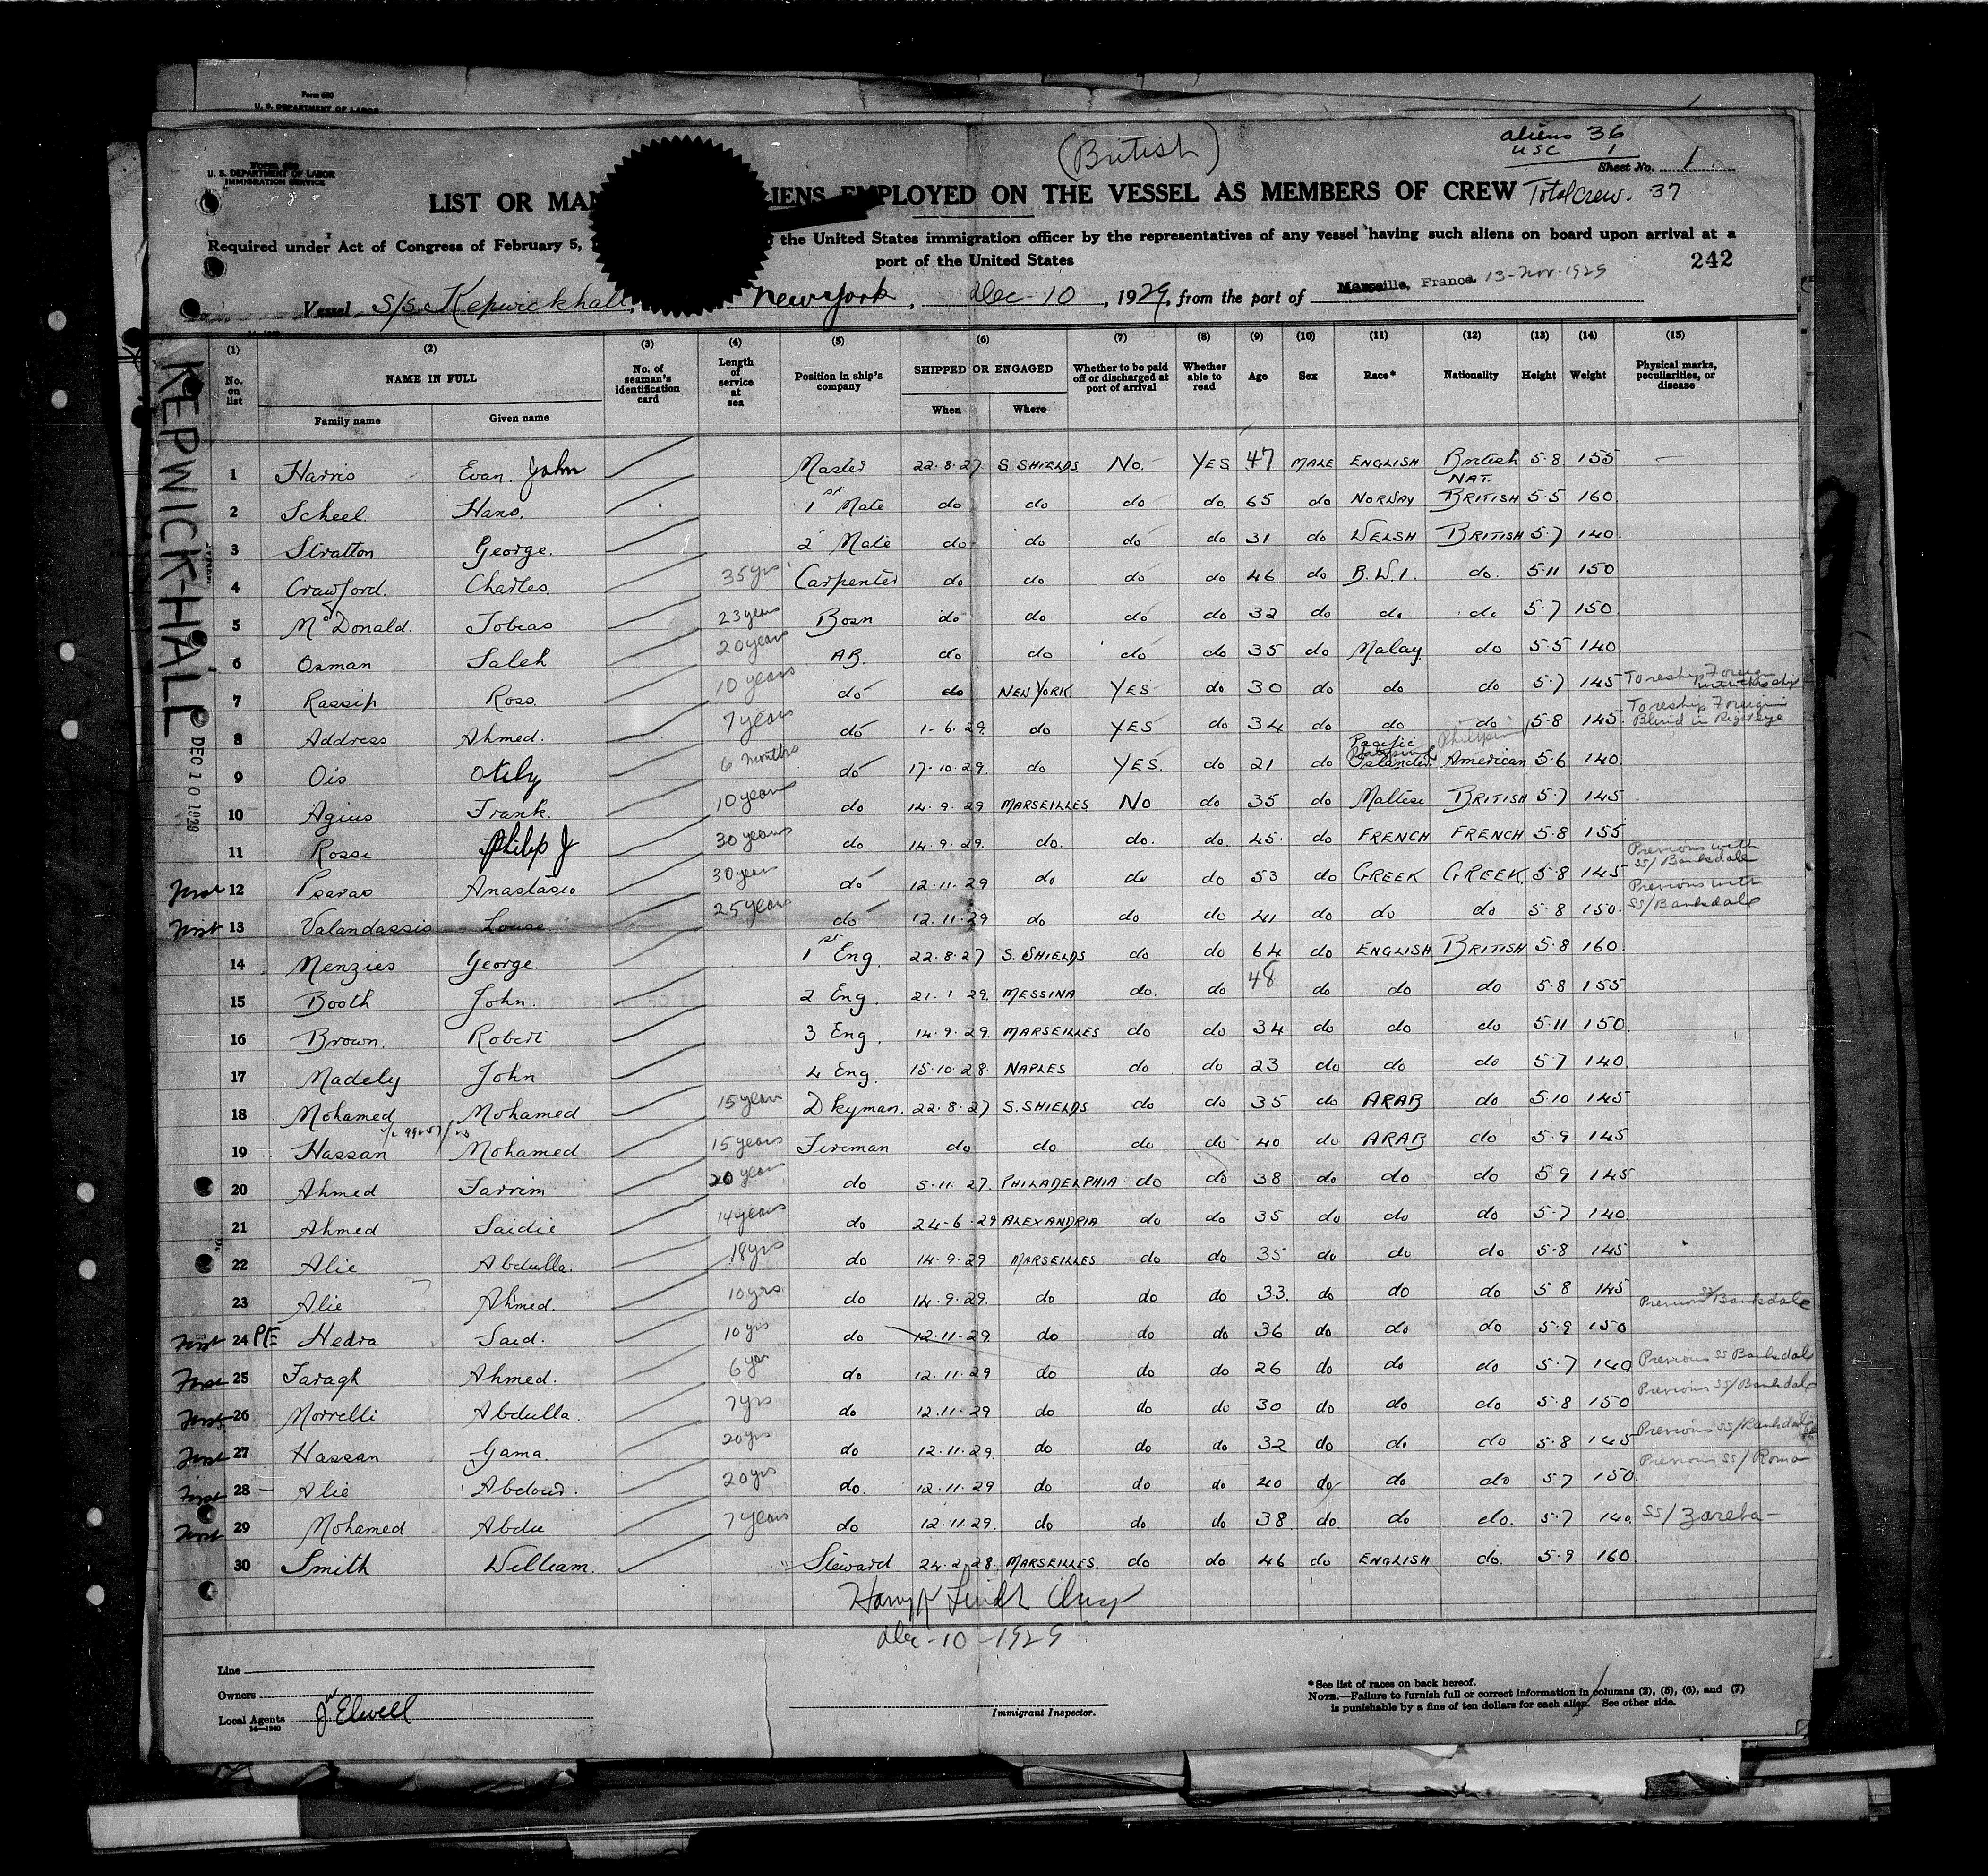 Form 680
U. S. DEPARTMENT OF LABOR
Form 680
U. S. DEPARTMENT OF LABOR
IMMIGRATION SERVICE
(British)
aliens 36
USC 1
Sheet No. 1
LIST OR MAN LIENS EMPLOYED ON THE VESSEL AS MEMBERS OF CREW Total crew. 37
Required under Act of Congress of February 5, the United States immigration officer by the representatives of any vessel having such aliens on board upon arrival at a
port of the United States
242
Vessel S/S. Kepwickhall, New York, Dec-10, 1929, from the port of Marseille, France 13-Nov-1929
KEPWICK-HALL
DEC 10 1929
(1) (2) (3) (4) (5) (6) (7) (8) (9) (10) (11) (12) (13) (14) (15)
No. on list NAME IN FULL Family name Given name No. of seaman's identification card Length of service at sea Position in ship's company SHIPPED OR ENGAGED When Where Whether to be paid off or discharged at port of arrival Whether able to read Age Sex Race* Nationality Height Weight Physical marks, peculiarities, or disease
1 Harris Evan John Master 22.8.27 S. SHIELDS No. YES 47 MALE ENGLISH British 5.8 155
2 Scheel Hans. 1st Mate do do do do 65 do NORWAY NAT. BRITISH 5.5 160
3 Stratton George. 2 Mate do do do do 31 do WELSH BRITISH 5.7 140
4 Crawford. Charles. 35 yrs. Carpenter do do do do 46 do B.W.I. do. 5.11 150
5 McDonald. Tobias 23 years Bosn do do do do 32 do do do 5.7 150
6 Osman Saleh 20 years AB. do do do do 35 do Malay do 5.5 140
7 Rassip Ross 10 years do do NEW YORK YES do 30 do do do 5.7 145 To reship Foreign with this ship
8 Address Ahmed. 7 years do 1-6.29. do YES do 34 do do do 5.8 145 To reship Foreign Blind in Right eye
9 Ois Otily 6 months do 17-10.29. do YES. do 21 do Pacific Islander Philippine American 5.6 140
10 Agius Frank. 10 years do 14.9.29 MARSEILLES No do 35 do Maltese BRITISH 5.7 145
11 Rossi Philip J 30 years do 14.9.29. do. do. do 45. do FRENCH FRENCH 5.8 155
First 12 Psaras Anastasio 30 year do 12.11.29 do do do 53 do GREEK GREEK. 5.8 145 Previous with SS/Banksdale
First 13 Valandassis Louse 25 years do 12.11.29 do do do 41 do do do 5.8 150. Previous with SS/Banksdale
14 Menzies George. 1st Eng. 22.8.27 S. SHIELDS do do 64 do ENGLISH BRITISH 5.8 160.
15 Booth John. 2 Eng. 21.1.29. MESSINA do. do 48 do do do 5.8 155
16 Brown. Robert 3 Eng. 14.9.29. MARSEILLES do do 34 do do do 5.11 150.
17 Madely John 4 Eng. 15.10.28. NAPLES do do 23 do do do 5.7 140
18 Mohamed Mohamed 15 years Dkyman. 22.8.27 S. SHIELDS do do 35 do ARAB do 5.10 145
19 Hassan Mohamed 15 years Fireman do do do do 40 do ARAB do 5.9 145
20 Ahmed Farrim 20 years do 5.11.27. PHILADELPHIA do do 38 do do do 5.9 145
21 Ahmed Saidie 14 years do 24-6.29 ALEXANDRIA do do 35 do do do 5.7 140.
22 Alie Abdulla. 18 yrs do 14.9.29 MARSEILLES do do 35 do do do 5.8 145
23 Alie Ahmed. 10 yrs do 14.9.29. do do do 33. do do do 5.8 145
First 24 Hedra Said. 10 yrs do 12.11-29. do do do 36 do do do 5.9 150 Previous SS/Banksdale
First 25 Faragh Ahmed. 6 yrs do 12.11.29 do do do 26 do do do 5.7 140 Previous SS Banksdale
First 26 Morrelli Abdulla. 7 yrs do 12.11.29 do do do 30 do do do 5.8 150 Previous SS/Banksdale
First 27 Hassan Gama. 20 yrs do 12.11.29. do do do 32 do do do 5.8 145 Previous SS/Banksdale
First 28 Alie Abdoud. 20 yrs do. 12.11.29 do do do 40 do do do 5.7 150. Previous SS/Roma
First 29 Mohamed Abdu 7 years do 12.11.29. do do do 38. do. do do. 5.7 140. SS/Zareba
30 Smith William. Steward 24.2.28. MARSEILLES. do do 46 do ENGLISH do. 5.9 160
Dec-10-1929
Line
Owners
Local Agents J W Elwell
14—1940
Immigrant Inspector.
*See list of races on back hereof.
NOTE.—Failure to furnish full or correct information in columns (2), (5), (6), and (7)
is punishable by a fine of ten dollars for each alien. See other side.